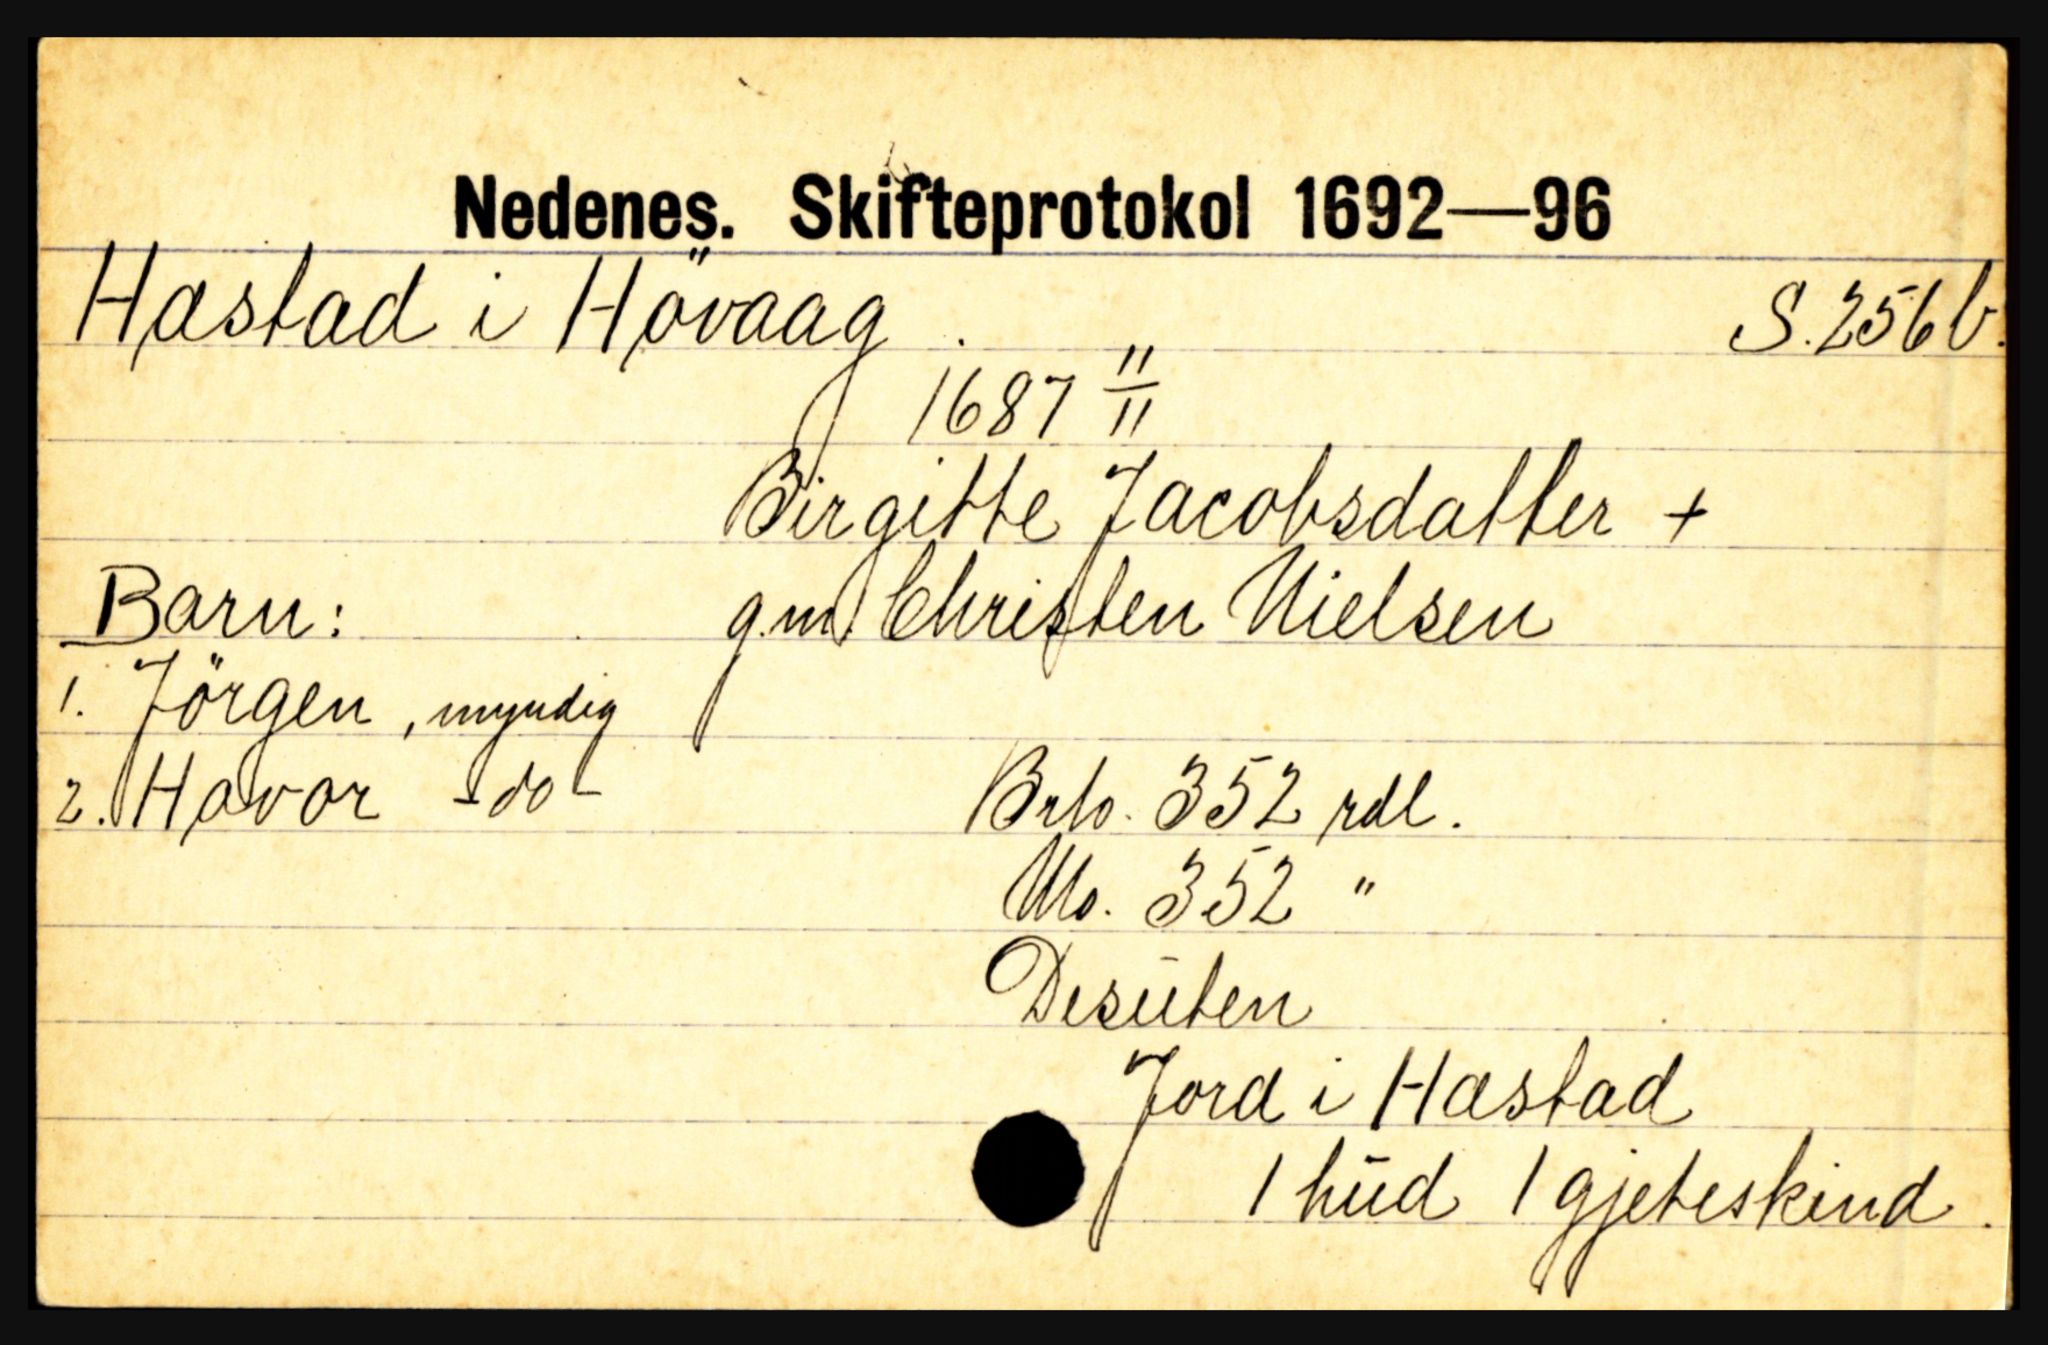 Nedenes. Skifteprotokol 1692—96
Hæstad i Hövaag. S. 256b.
1687 11/11
Birgitte Jacobsdatter +
Barn: g.m. Christen Nielsen
1. Jörgen, myndig
2. Havor -do- Brto. 352 rdl.
No. 352 "
Desuten
Jord i Hæstad
1 hud 1 gjeteskind.